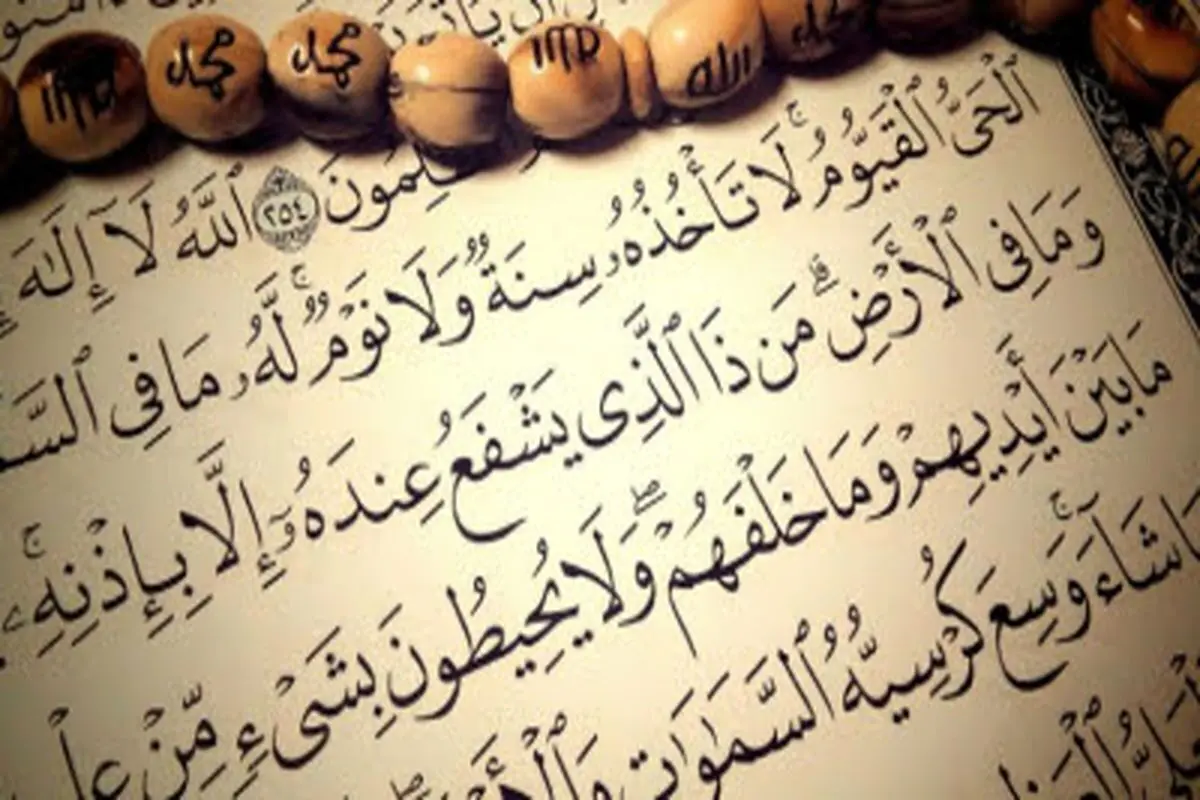 محمد محمد الله محمد
لِمُونَ ٢٥٤ ٱللَّهُ لَآ إِلَٰهَ
ٱلْحَىُّ ٱلْقَيُّومُ ۚ لَا تَأْخُذُهُۥ سِنَةٌ وَلَا نَوْمٌ ۚ لَّهُۥ مَا فِى ٱلسَّ
وَمَا فِى ٱلْأَرْضِ ۗ مَن ذَا ٱلَّذِى يَشْفَعُ عِندَهُۥٓ إِلَّا بِإِذْنِهِۦ ۚ
مَا بَيْنَ أَيْدِيهِمْ وَمَا خَلْفَهُمْ ۖ وَلَا يُحِيطُونَ بِشَىْءٍ مِّنْ عِلْ
شَآءَ ۚ وَسِعَ كُرْسِيُّهُ ٱلسَّمَٰوَٰتِ وَٱلْأَرْ